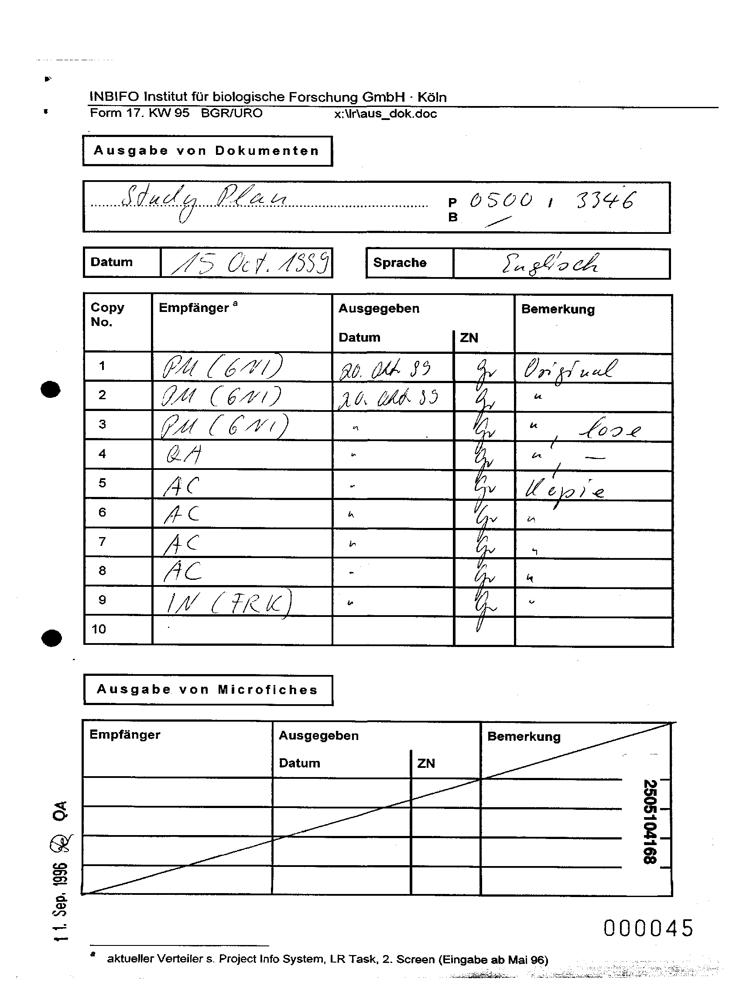 INBIFO Institut für biologische Forschung GmbH · Köln
Form 17. KW 95 BGR/URO x:\lr\aus_dok.doc
Ausgabe von Dokumenten
Study Plan P 0500 / 3346
B /
Datum 15 Oct. 1999 Sprache Englisch
Copy No. Empfänger a Ausgegeben Bemerkung
Datum ZN
1 PM (GNI) 20. Okt 99 Gr Original
2 PM (GNI) 20. Okt. 99 Gr "
3 PM (GNI) " Gr ", lose
4 QA " Gr ", —
5 AC " Gr Kopie
6 AC " Gr "
7 AC " Gr "
8 AC " Gr "
9 IN (FRK) " Gr "
10
Ausgabe von Microfiches
Empfänger Ausgegeben Bemerkung
Datum ZN
2505104168
11. Sep. 1996 QA
000045
a aktueller Verteiler s. Project Info System, LR Task, 2. Screen (Eingabe ab Mai 96)